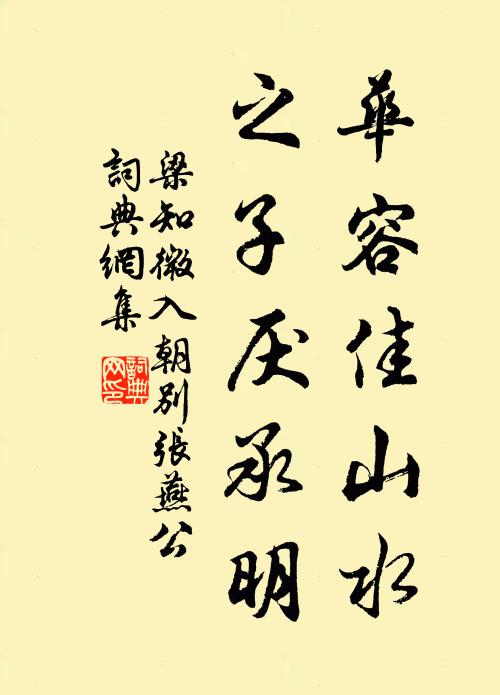 華容佳山水
之子厌承明
梁知微入朝別張燕公
詞典網集
詞典
网印